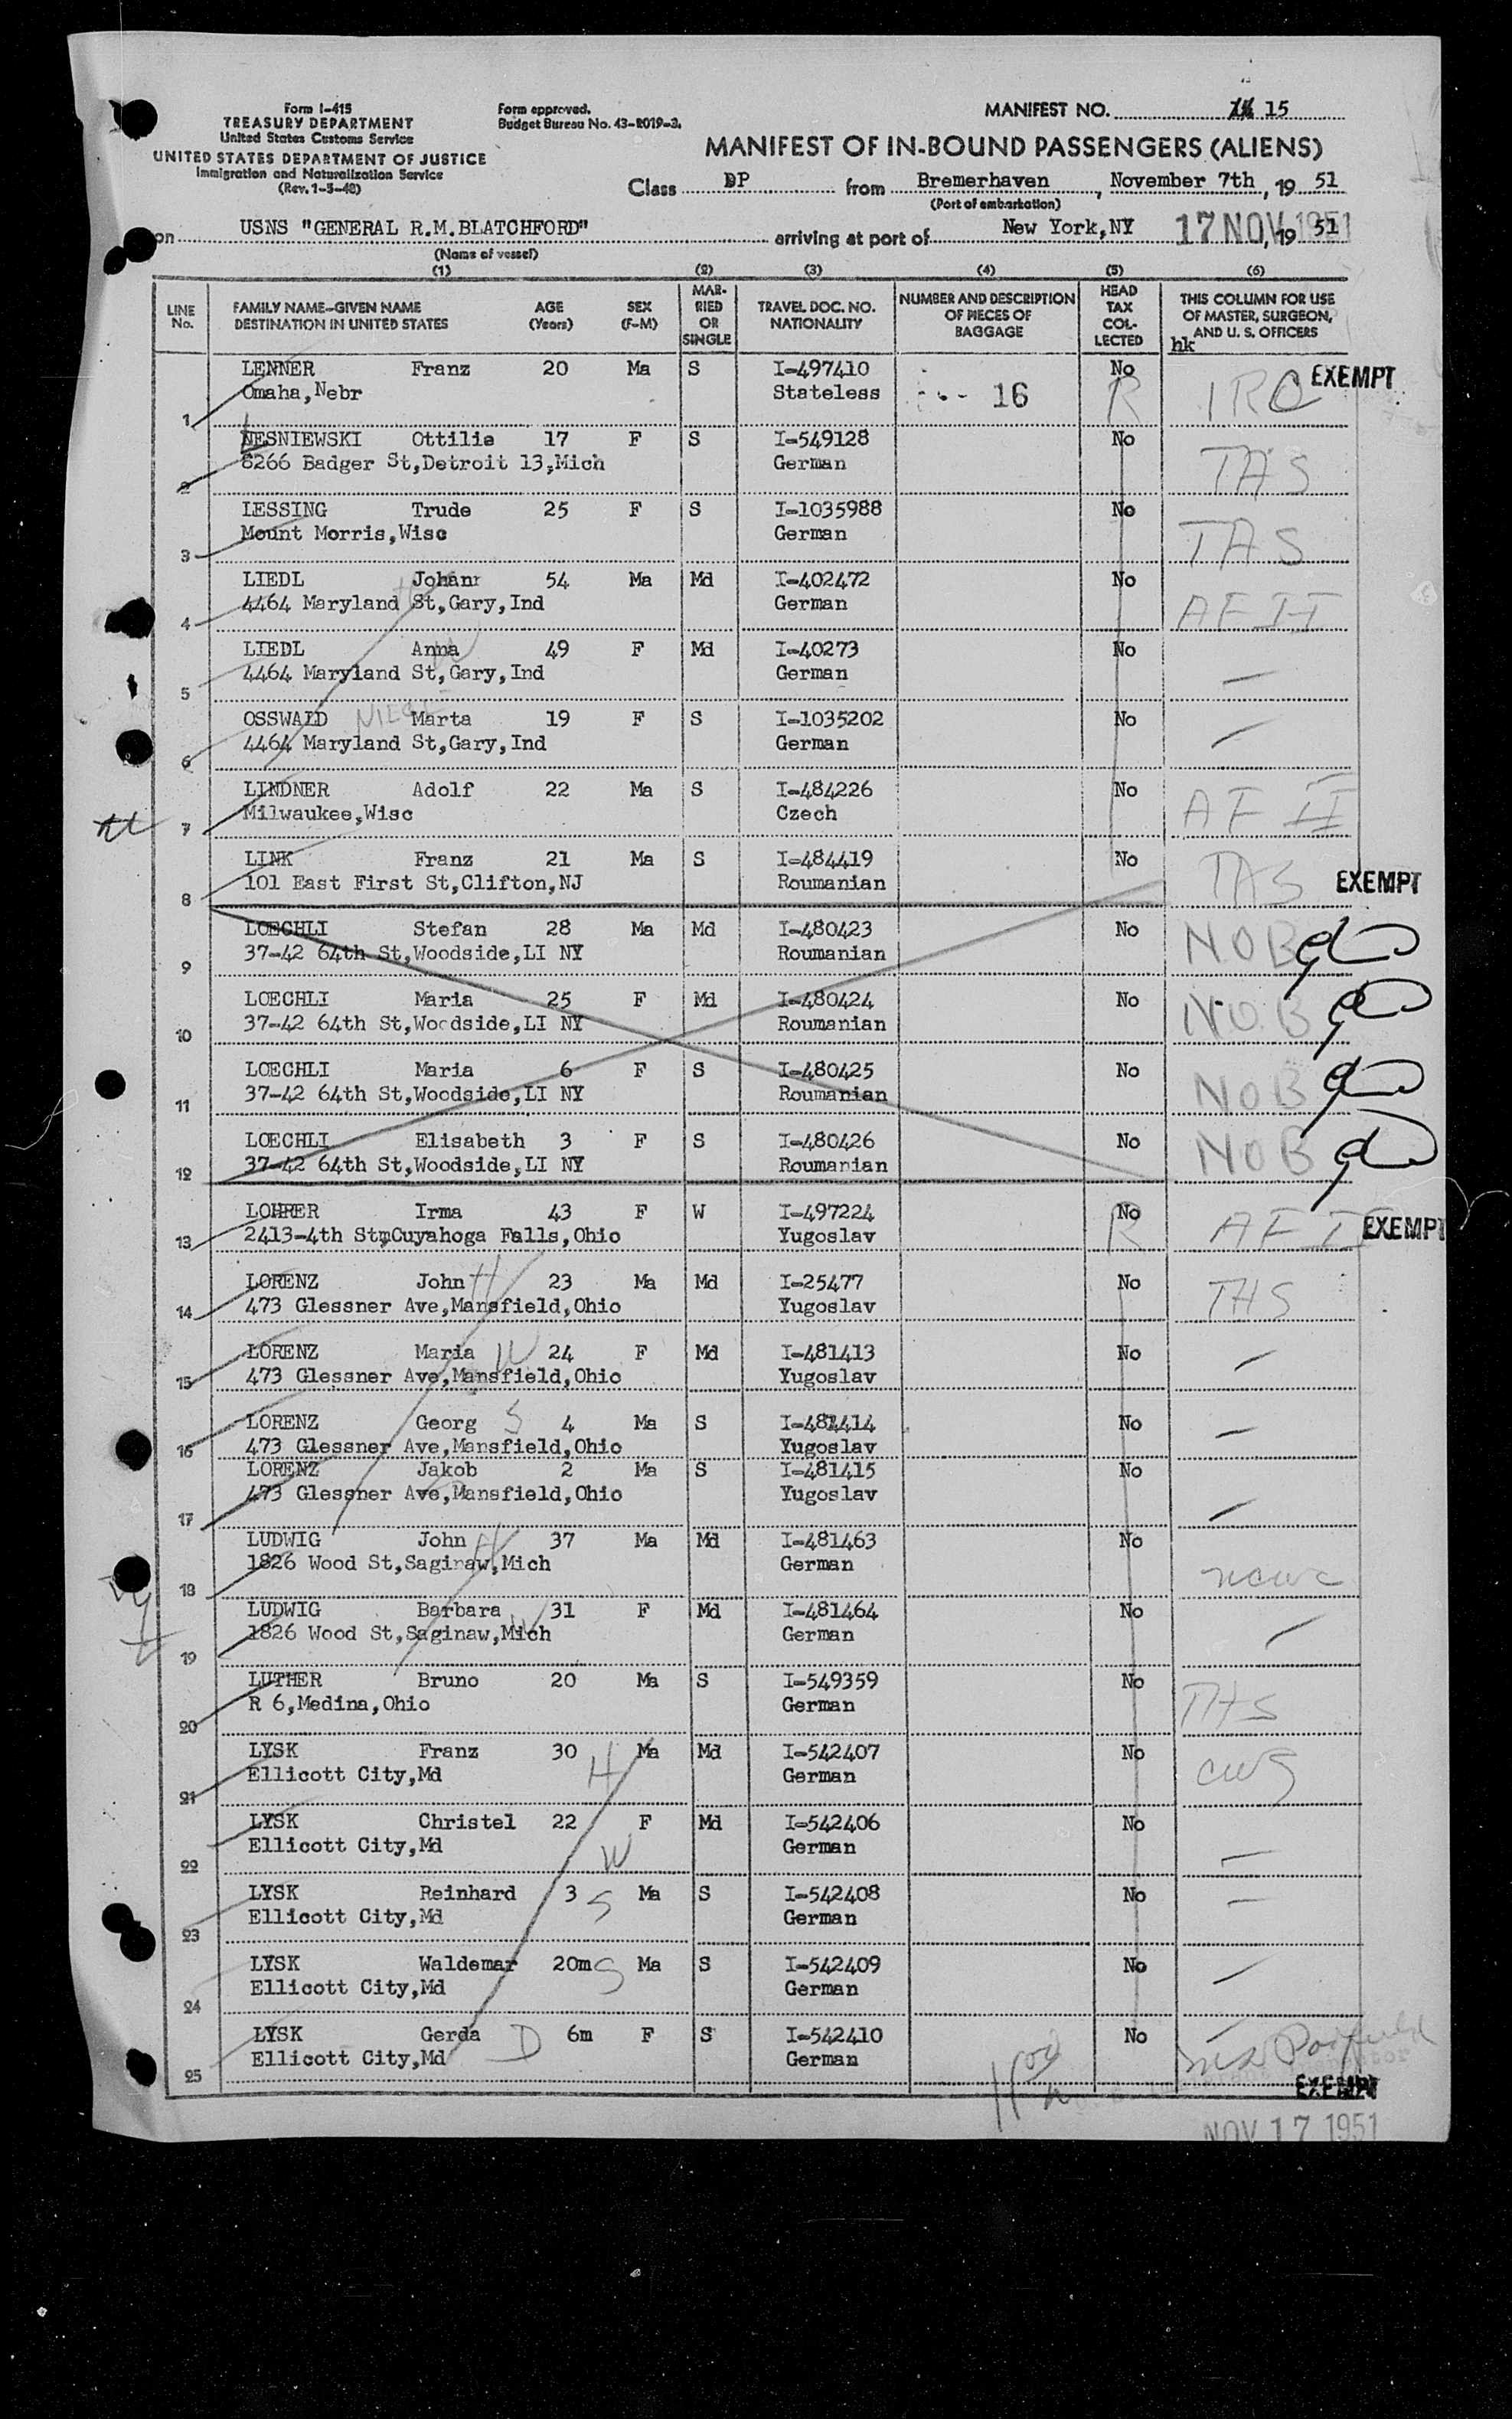 Form I-415
TREASURY DEPARTMENT
United States Customs Service
UNITED STATES DEPARTMENT OF JUSTICE
Immigration and Naturalization Service
(Rev. 1-3-48)
Form approved.
Budget Bureau No. 43-R019-3.
MANIFEST NO. 15
MANIFEST OF IN-BOUND PASSENGERS (ALIENS)
Class DP from Bremerhaven, November 7th, 19 51
(Port of embarkation)
on USNS "GENERAL R.M.BLATCHFORD" arriving at port of New York,NY 17 NOV 1951, 19 51
(Name of vessel)
(1) (2) (3) (4) (5) (6)
LINE No. FAMILY NAME-GIVEN NAME DESTINATION IN UNITED STATES AGE (Years) SEX (F-M) MARRIED OR SINGLE TRAVEL DOC. NO. NATIONALITY NUMBER AND DESCRIPTION OF PIECES OF BAGGAGE HEAD TAX COLLECTED THIS COLUMN FOR USE OF MASTER, SURGEON, AND U. S. OFFICERS
hk
LENNER Franz 20 Ma S I-497410 No EXEMPT
1 Omaha,Nebr Stateless 16 R IRO
LESNIEWSKI Ottilie 17 F S I-549128 No
2 8266 Badger St,Detroit 13,Mich German TAS
LESSING Trude 25 F S I-1035988 No
3 Mount Morris,Wisc German TAS
LIEDL Johann 54 Ma Md I-402472 No
4 4464 Maryland St,Gary,Ind German AF II
LIEDL Anna W 49 F Md I-40273 No
5 4464 Maryland St,Gary,Ind German —
OSSWALD NIECE Marta 19 F S I-1035202 No
6 4464 Maryland St,Gary,Ind German —
LINDNER Adolf 22 Ma S I-484226 No
7 Milwaukee,Wisc Czech AF II
LINK Franz 21 Ma S I-484419 No TAS
8 101 East First St,Clifton,NJ Roumanian EXEMPT
LOECHLI Stefan 28 Ma Md I-480423 No NOB
9 37-42 64th St,Woodside,LI NY Roumanian
LOECHLI Maria 25 F Md I-480424 No NOB
10 37-42 64th St,Woodside,LI NY Roumanian
LOECHLI Maria 6 F S I-480425 No NOB
11 37-42 64th St,Woodside,LI NY Roumanian
LOECHLI Elisabeth 3 F S I-480426 No NOB
12 37-42 64th St,Woodside,LI NY Roumanian
LOHRER Irma 43 F W I-497224 No R AF II EXEMPT
13 2413-4th Stm,Cuyahoga Falls,Ohio Yugoslav
LORENZ John H 23 Ma Md I-25477 No
14 473 Glessner Ave,Mansfield,Ohio Yugoslav THS
LORENZ Maria W 24 F Md I-481413 No
15 473 Glessner Ave,Mansfield,Ohio Yugoslav —
LORENZ Georg S 4 Ma S I-481414 No
16 473 Glessner Ave,Mansfield,Ohio Yugoslav —
LORENZ Jakob 2 Ma S I-481415 No
17 473 Glessner Ave,Mansfield,Ohio Yugoslav —
LUDWIG John H 37 Ma Md I-481463 No
18 1826 Wood St,Saginaw,Mich German ncwc
LUDWIG Barbara W 31 F Md I-481464 No
19 1826 Wood St,Saginaw,Mich German —
LUTHER Bruno 20 Ma S I-549359 No
20 R 6,Medina,Ohio German THS
LYSK Franz 30 H Ma Md I-542407 No
21 Ellicott City,Md German CWS
LYSK Christel 22 F Md I-542406 No
22 Ellicott City,Md W German —
LYSK Reinhard 3 S Ma S I-542408 No
23 Ellicott City,Md German —
LYSK Waldemar 20m S Ma S I-542409 No
24 Ellicott City,Md German —
LYSK Gerda D 6m F S I-542410 No
25 Ellicott City,Md German —
EXEMPT
NOV 17 1951